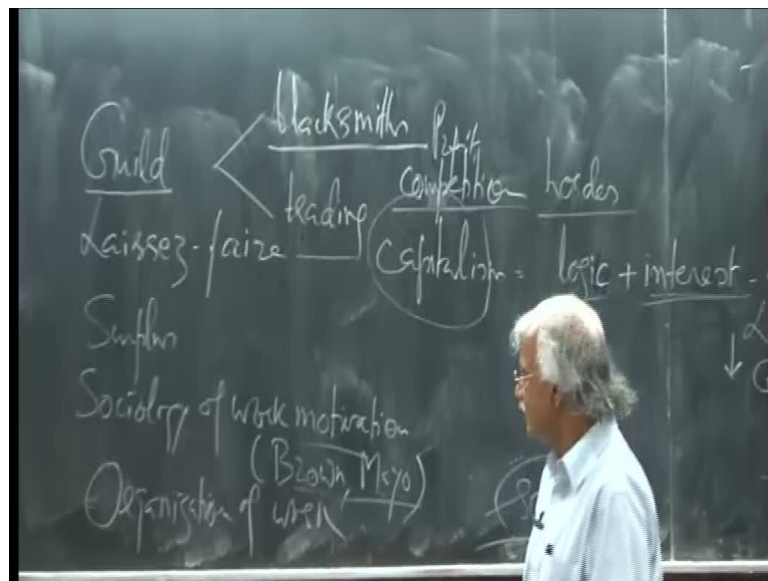 Guild < blacksmiths Profit
trading competition hordes
Laissez-faire capitalism = logic + interest
Surplus
Sociology of work motivation
(Brown, Mayo)
Organization of work